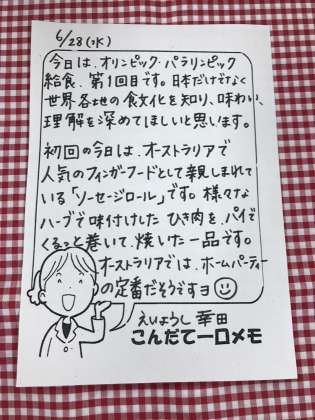 6/28(水)
今日は、オリンピック・パラリンピック
給食、第1回目です。日本だけでなく
世界各地の食文化を知り、味わい、
理解を深めてほしいと思います。
初回の今日は、オーストラリアで
人気のフィンガーフードとして親しまれて
いる「ソーセージロール」です。様々な
ハーブで味付けした ひき肉を、パイで
くるっと巻いて、焼いた一品です。
オーストラリアでは、ホームパーティー
の定番だそうですヨ
えいようし 幸田
こんだて一口メモ